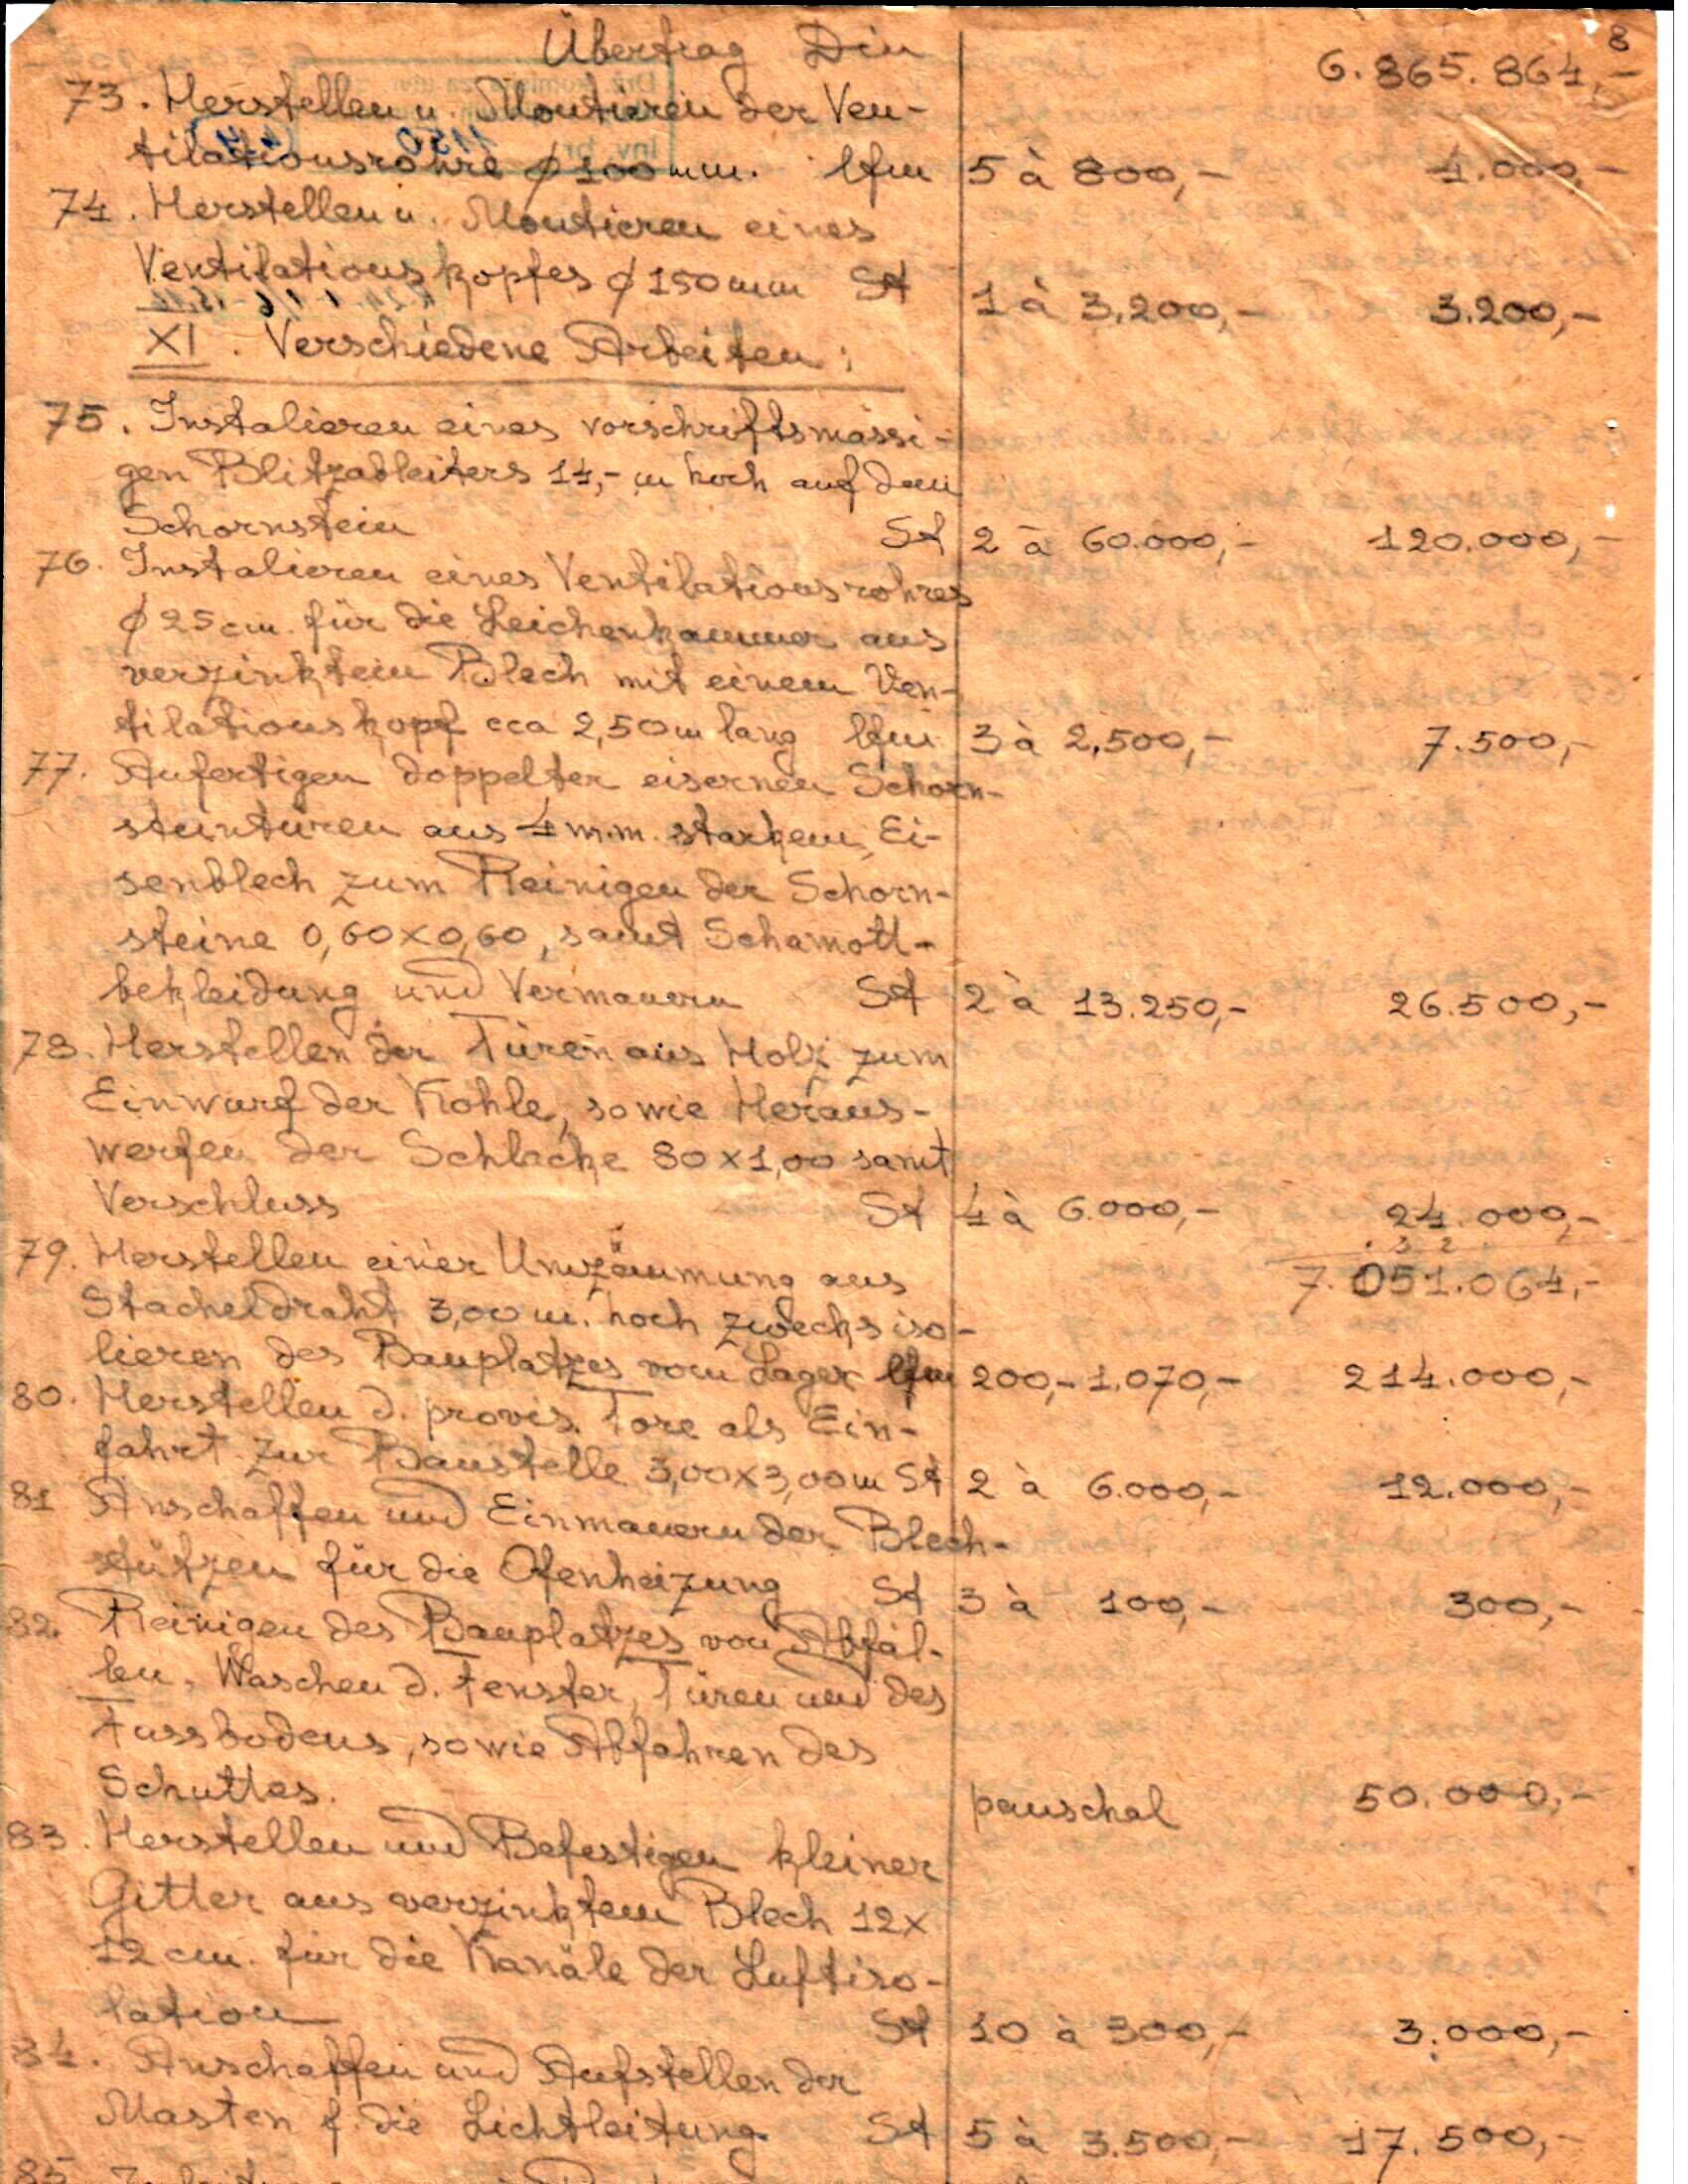 8
Übertrag Din 6.865.864,-
73. Herstellen u. Montieren der Ven-
tilationsrohre ∅ 100 mm. lfm 5 à 800,- 4.000,-
74. Herstellen u. Montieren eines
Ventilationskopfes ∅ 150 mm St 1 à 3.200,- 3.200,-
XI. Verschiedene Arbeiten:
75. Instalieren eines vorschriftsmässi-
gen Blitzableiters 14,- m hoch auf dem
Schornstein St 2 à 60.000,- 120.000,-
76. Instalieren eines Ventilationsrohres
∅ 25 cm. für die Leichenkammer aus
verzinktem Blech mit einem Ven-
tilationskopf cca 2,50 m lang lfm 3 à 2.500,- 7.500,-
77. Anfertigen doppelter eisernen Schorn-
steintüren aus 4 m.m. starkem Ei-
senblech zum Reinigen der Schorn-
steine 0,60x0,60, samt Schamott-
bekleidung und Vermauern St 2 à 13.250,- 26.500,-
78. Herstellen der Türen aus Holz zum
Einwurf der Kohle, sowie Heraus-
werfen der Schlacke 80x1,00 samt
Verschluss St 4 à 6.000,- 24.000,-
3 2
7.051.064,-
79. Herstellen einer Umzäumung aus
Stacheldraht 3,00 m. hoch zwecks iso-
lieren des Bauplatzes vom Lager lfm 200,- 1.070,- 214.000,-
80. Herstellen d. provis. Tore als Ein-
fahrt zur Baustelle 3,00x3,00 m St 2 à 6.000,- 12.000,-
81 Anschaffen und Einmauern der Blech-
stützen für die Ofenheizung St 3 à 100,- 300,-
82. Reinigen des Bauplatzes von Abfäl-
len, Waschen d. Fenster, Türen und des
Fussbodens, sowie Abfahren des
Schuttes. pauschal 50.000,-
83. Herstellen und Befestigen kleiner
Gitter aus verzinktem Blech 12x
12 cm. für die Kanäle der Luftiso-
lation St 10 à 300,- 3.000,-
84. Anschaffen und Aufstellen der
Masten f. die Lichtleitung St 5 à 3.500,- 17.500,-
85.